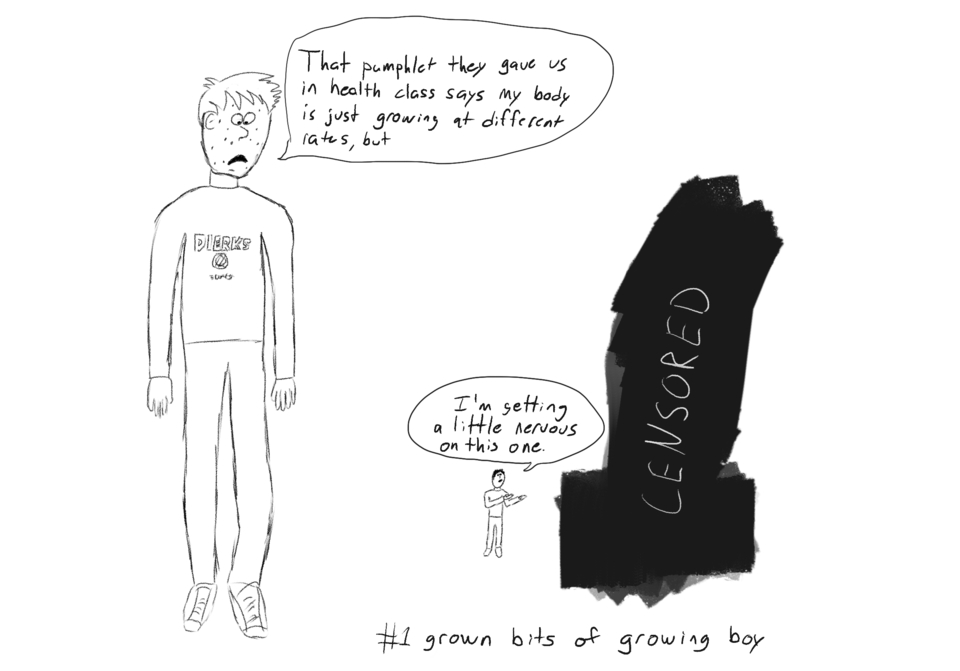 That pamphlet they gave us
in health class says my body
is just growing at different
rates, but
DIERKS
I'm getting
a little nervous
on this one.
CENSORED
#1 grown bits of growing boy